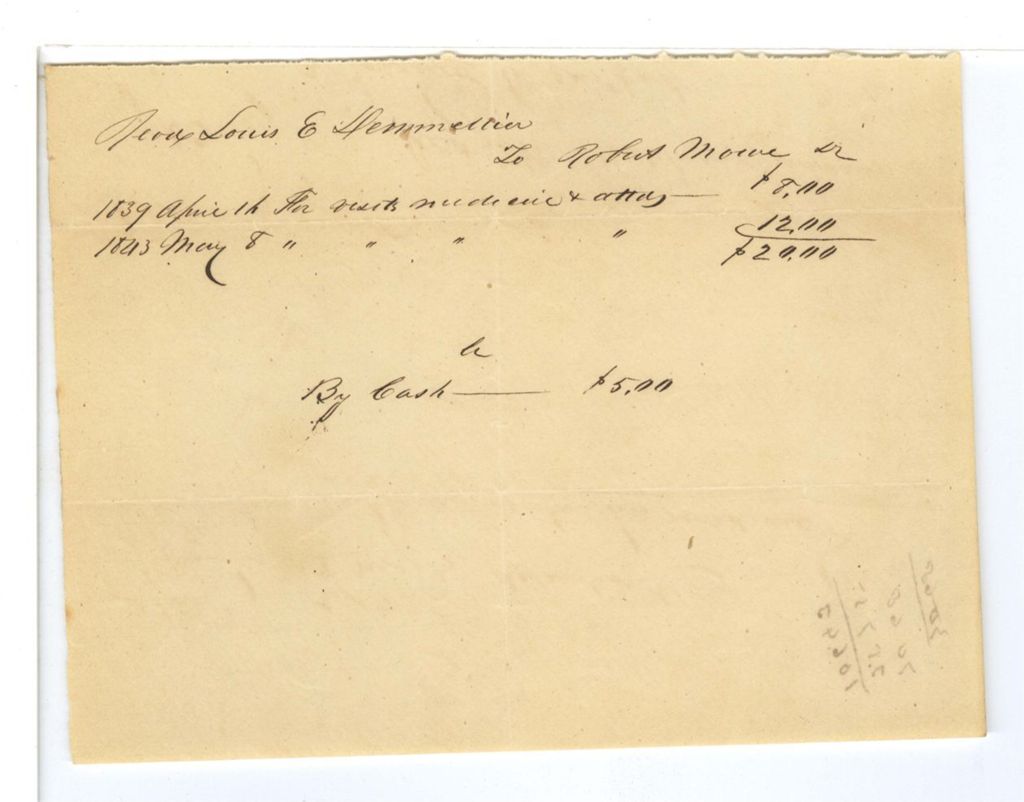 Louis E Hemmellier
To Robert Mowe Dr
$8.00
1839 April 16 For visits medicine & attdg —
12.00
1843 May 8 " " " "
$20.00
Cr
By Cash — $5.00